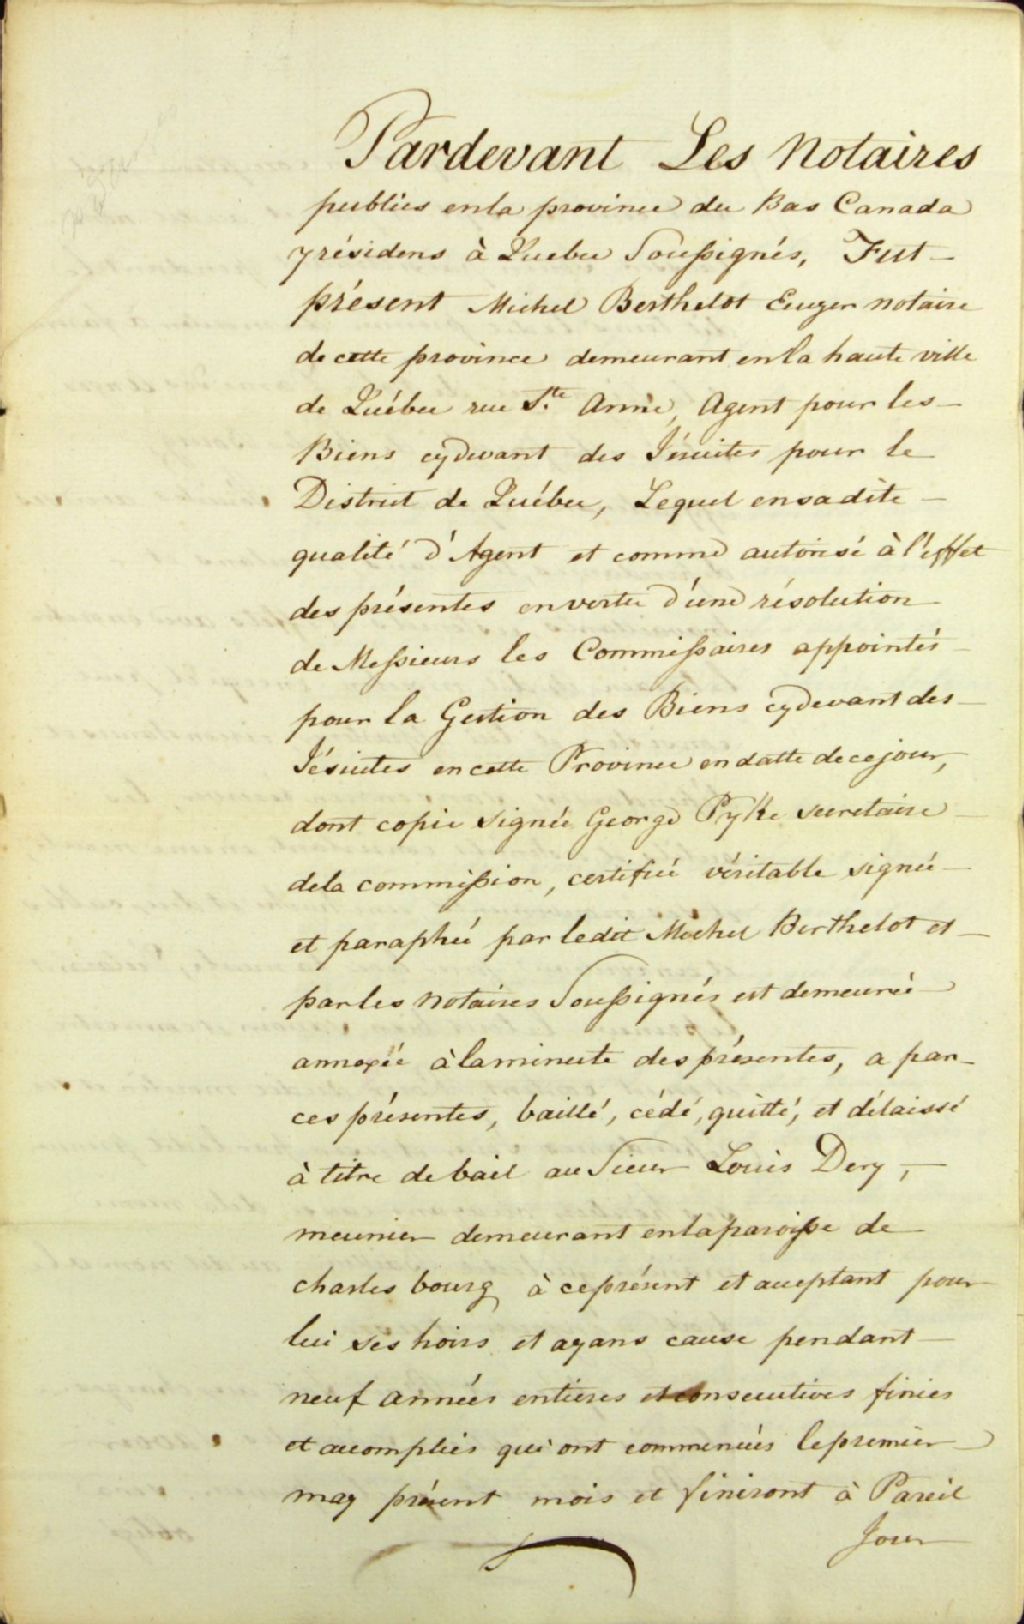 Pardevant Les Notaires
publics en la province du Bas Canada
y résidens à Quebec Soussignés, Fut
présent Michel Berthelot Ecuyer notaire
de cette province demeurant en la haute ville
de Québec rue Ste Anne, Agent pour les
Biens cydevant des Jésuites pour le
District de Québec, Lequel en sadite
qualité d'Agent et comme autorisé à l'effet
des présentes en vertu d'une résolution
de Messieurs les Commissaires appointés
pour la Gestion des Biens cydevant des
Jésuites en cette Province en datte de ce jour,
dont copie signée George Pyke secretaire
de la commission, certifiée véritable signée
et paraphée par ledit Michel Berthelot et
par les notaires Soussignés est demeurée
annexée à la minute des présentes, a par
ces présentes, baillé, cédé, quitté, et délaissé
à titre de bail au Sieur Louis Dery,
meunier demeurant en la paroisse de
charles bourg à ce présent et acceptant pour
lui ses hoirs et ayans cause pendant
neuf années entieres et consecutives finies
et accomplies qui ont commencées le premier
may présent mois et finiront à Pareil
Jour